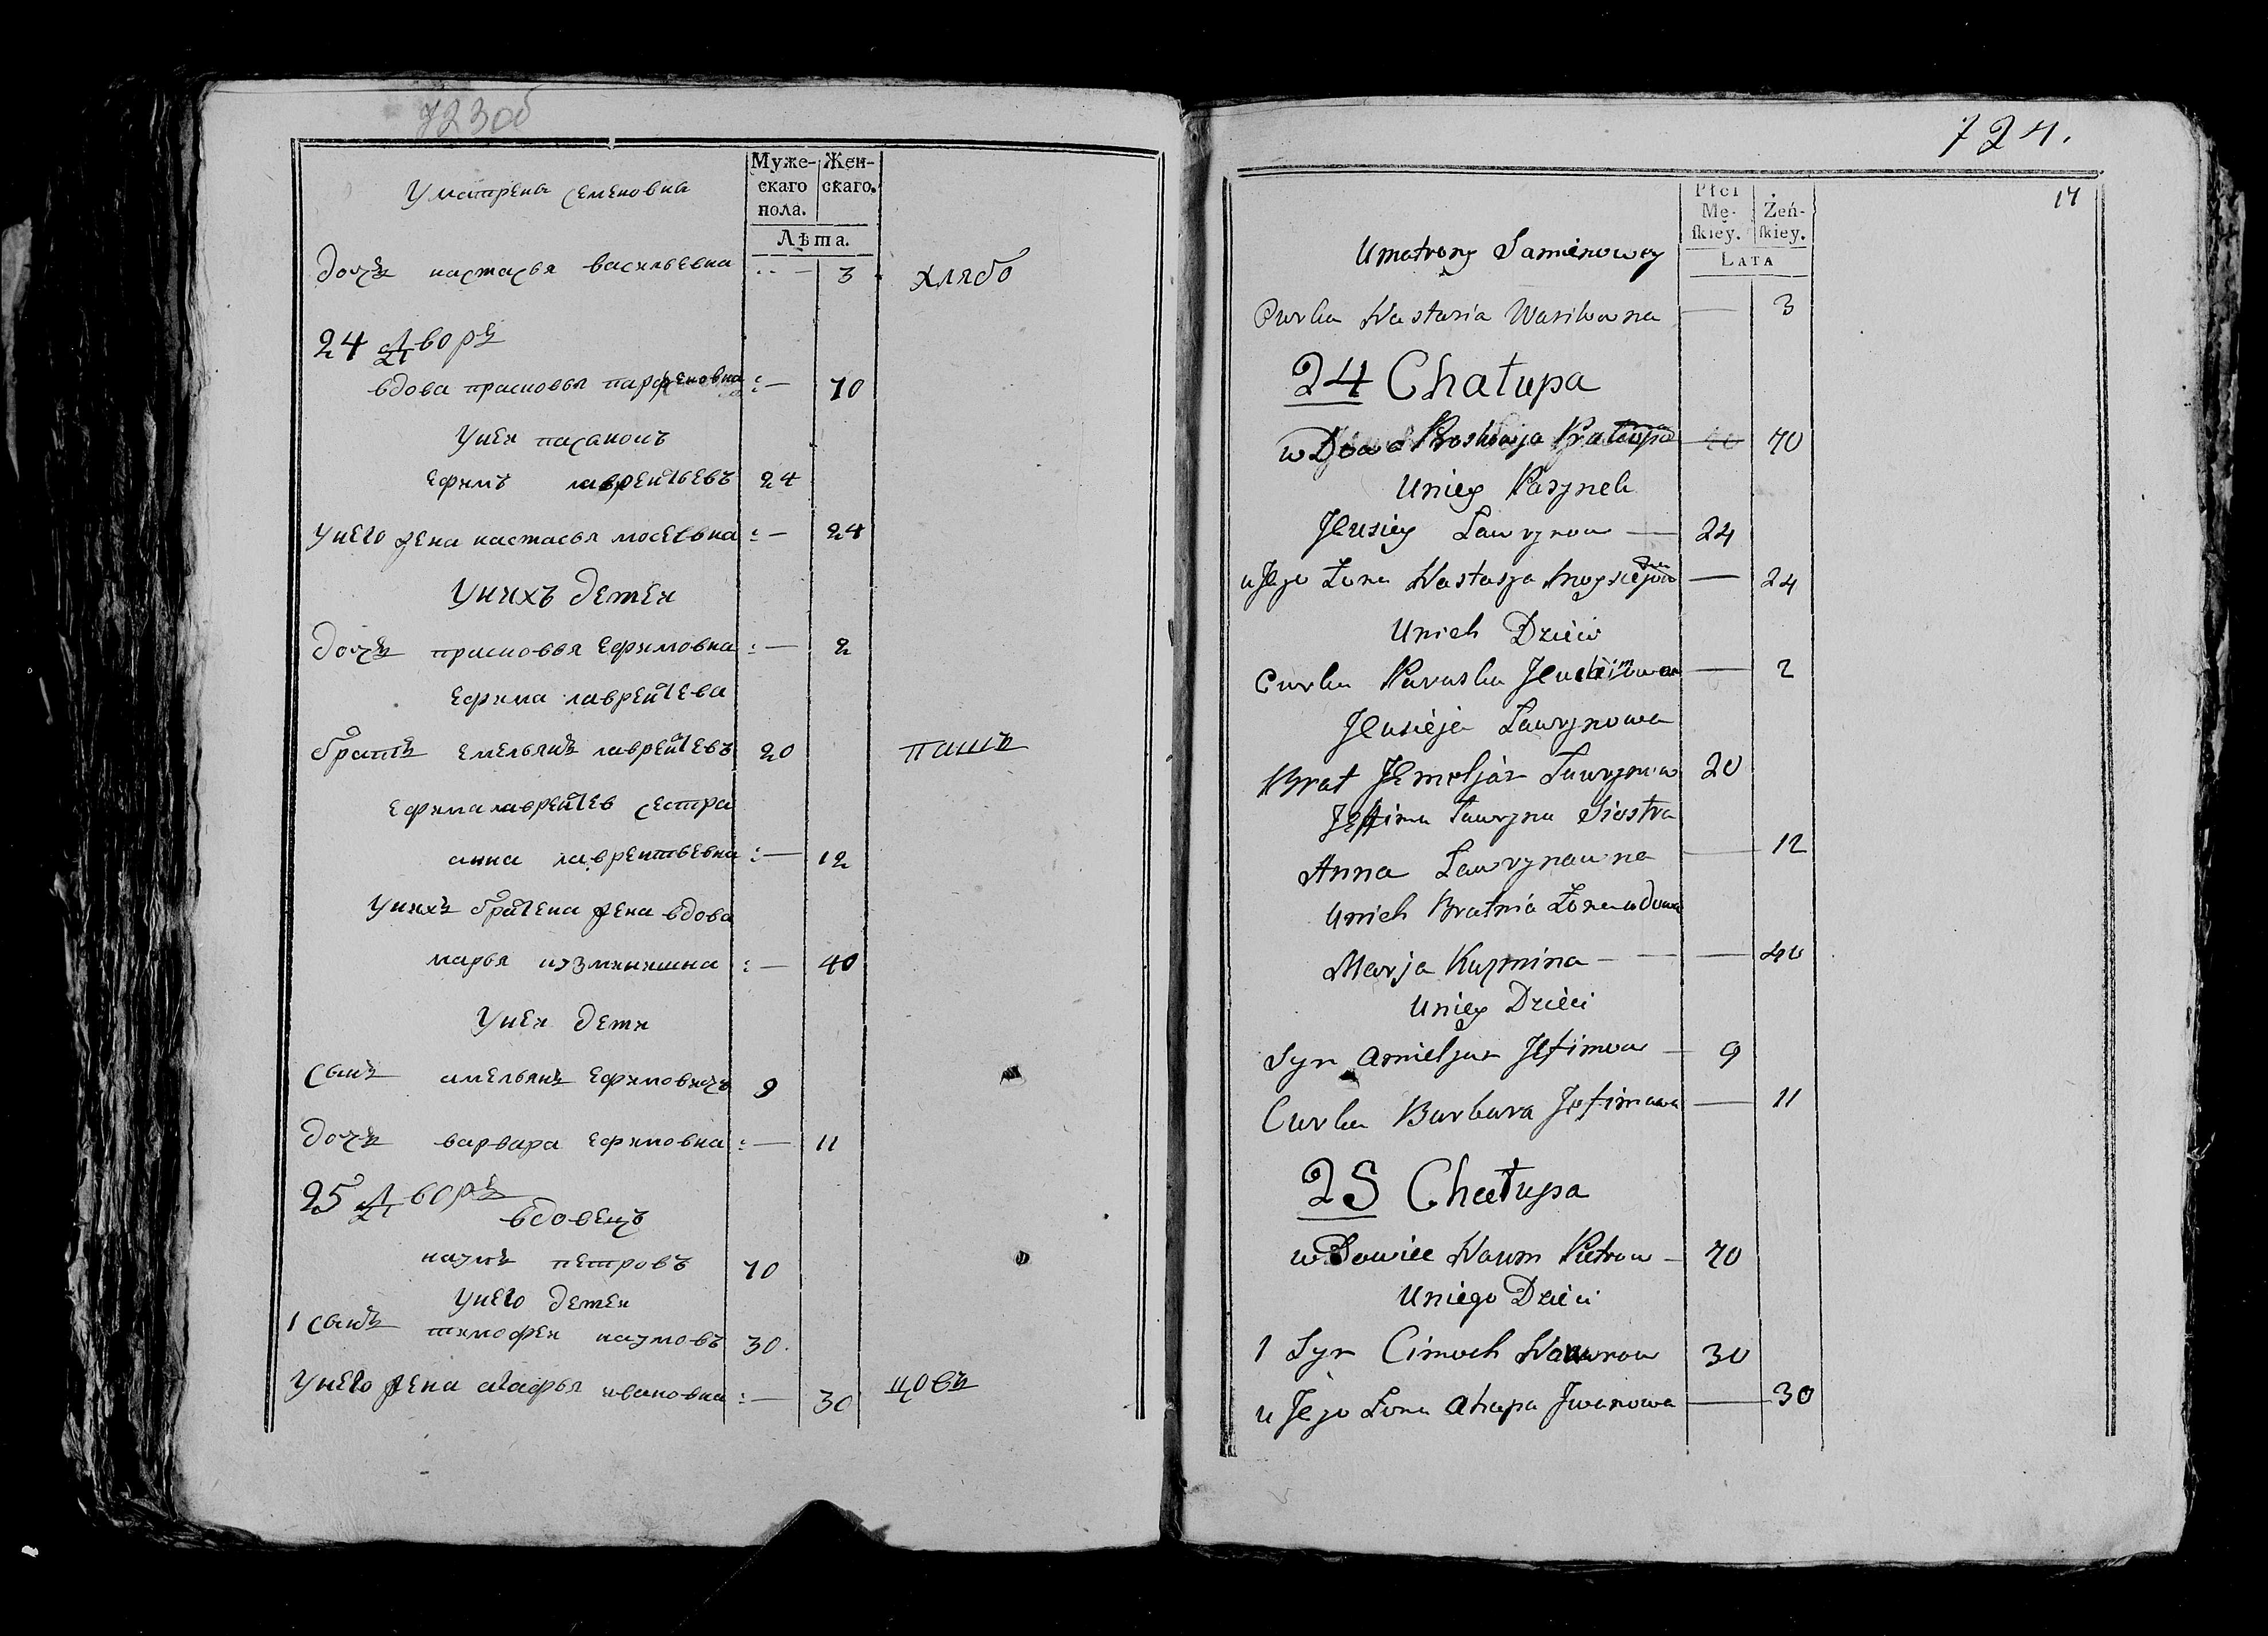 723об
Муже- Жен-
скаго скаго.
пола.
Лѣта.
У матрены семеновна
дочъ настасья васильевна 3 хлябо
24 дворъ
вдова прасковья парфеновна 70
У неи пасанокъ
ефимъ лаврентьевъ 24
У него жена настасья мосеевна 24
У нихъ детеи
дочъ прасковья ефимовна 2
ефима лаврентева
братъ емельянъ лаврентевъ 20 пашъ
ефима лаврентев сестра
анна лаврентьевна 12
У нихъ братена жена вдова
марья кузминишна 40
У неи дети
сынъ амельянъ ефимовичъ 9
дочъ варвара ефимовна 11
25 дворъ
вдовецъ
наумъ петровъ 70
У него детеи
1 сынъ тимофеи наумовъ 30.
У него жена агафья ивановна 30 щовъ
724.
17
Płci
Mę- Żeń-
skiey. skiey.
LATA
Umatrony Samienowey
Curka Nastasia Wasilowna 3
24 Chałupa
wDowa Proskowja 70
Uniey Pasynek
Jeusiey Lawrynow 24
uJego Żona Nastasja Moysiejowna 24
Unich Dzieci
Curka Paraska 2
Jeusieja Lawrynowa
Brat Jemeljan Lawrynow 20
Jefima Lawryna Siostra
Anna Lawrynawna 12
Unich Bratnia Żona wdowa
Marja Kuzmina 40
Uniey Dzieci
Syn Amieljan Jefimow 9
Curka Barbara Jefimowa 11
25 Chałupa
wDowiec Naum Pietrow 70
Uniego Dzieci
1 Syn Cimoch Naumow 30
uJego Żona Ahapa Jwanowa 30